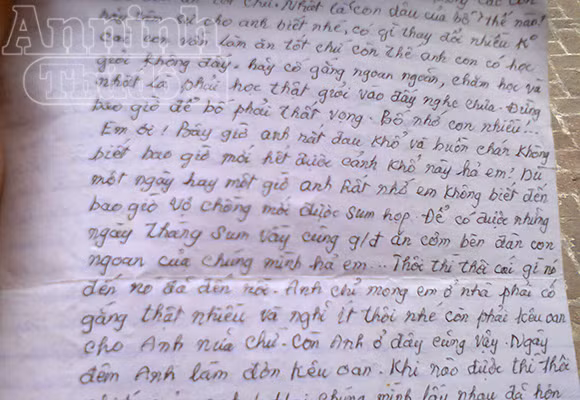 chứ. Nhất là con dâu của bố thế nào?
cho anh biết nhé, có gì thay đổi nhiều ko
làm ăn tốt chứ còn thế anh con có học
giỏi không đấy. hãy cố gắng ngoan ngoãn, chăm học và
nhất là phải học thật giỏi vào đấy nghe chưa. Đừng
bao giờ để bố phải thất vọng. Bố nhớ con nhiều...
Em ơi! Bây giờ anh rất đau khổ và buồn chán không
biết bao giờ mới hết được cảnh khổ này hả em! Dù
một ngày hay một giờ anh Rất nhớ em không biết đến
bao giờ vợ chồng mới được sum họp. Để có được những
ngày tháng sum vầy cùng g/đ ăn cơm bên đàn con
ngoan của chúng mình hả em... Thôi thì thôi cái gì nó
đến nó đã đến rồi. Anh chỉ mong em ở nhà phải cố
gắng thật nhiều và nghỉ ít thôi nhé còn phải kêu oan
cho Anh nữa chứ. Còn Anh ở đây cũng vậy. Ngày
đêm Anh làm đơn kêu oan. Khi nào được thì thôi
chúng mình lấy nhau đã hơn
An ninh
Thủ đô